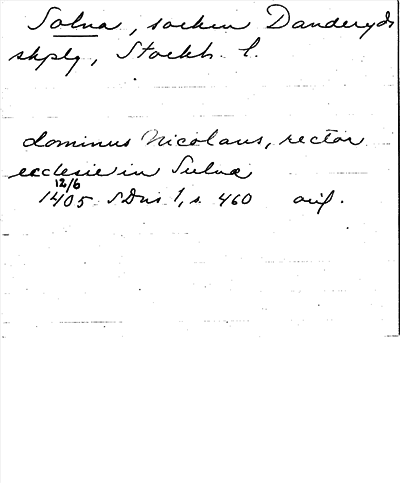 Solna, socken Danderyds
skplg, Stockh. l.
dominus Nicolaus, rector
ecclesie in Sulna
12/6
1405 SDns 1, s. 460 orig.